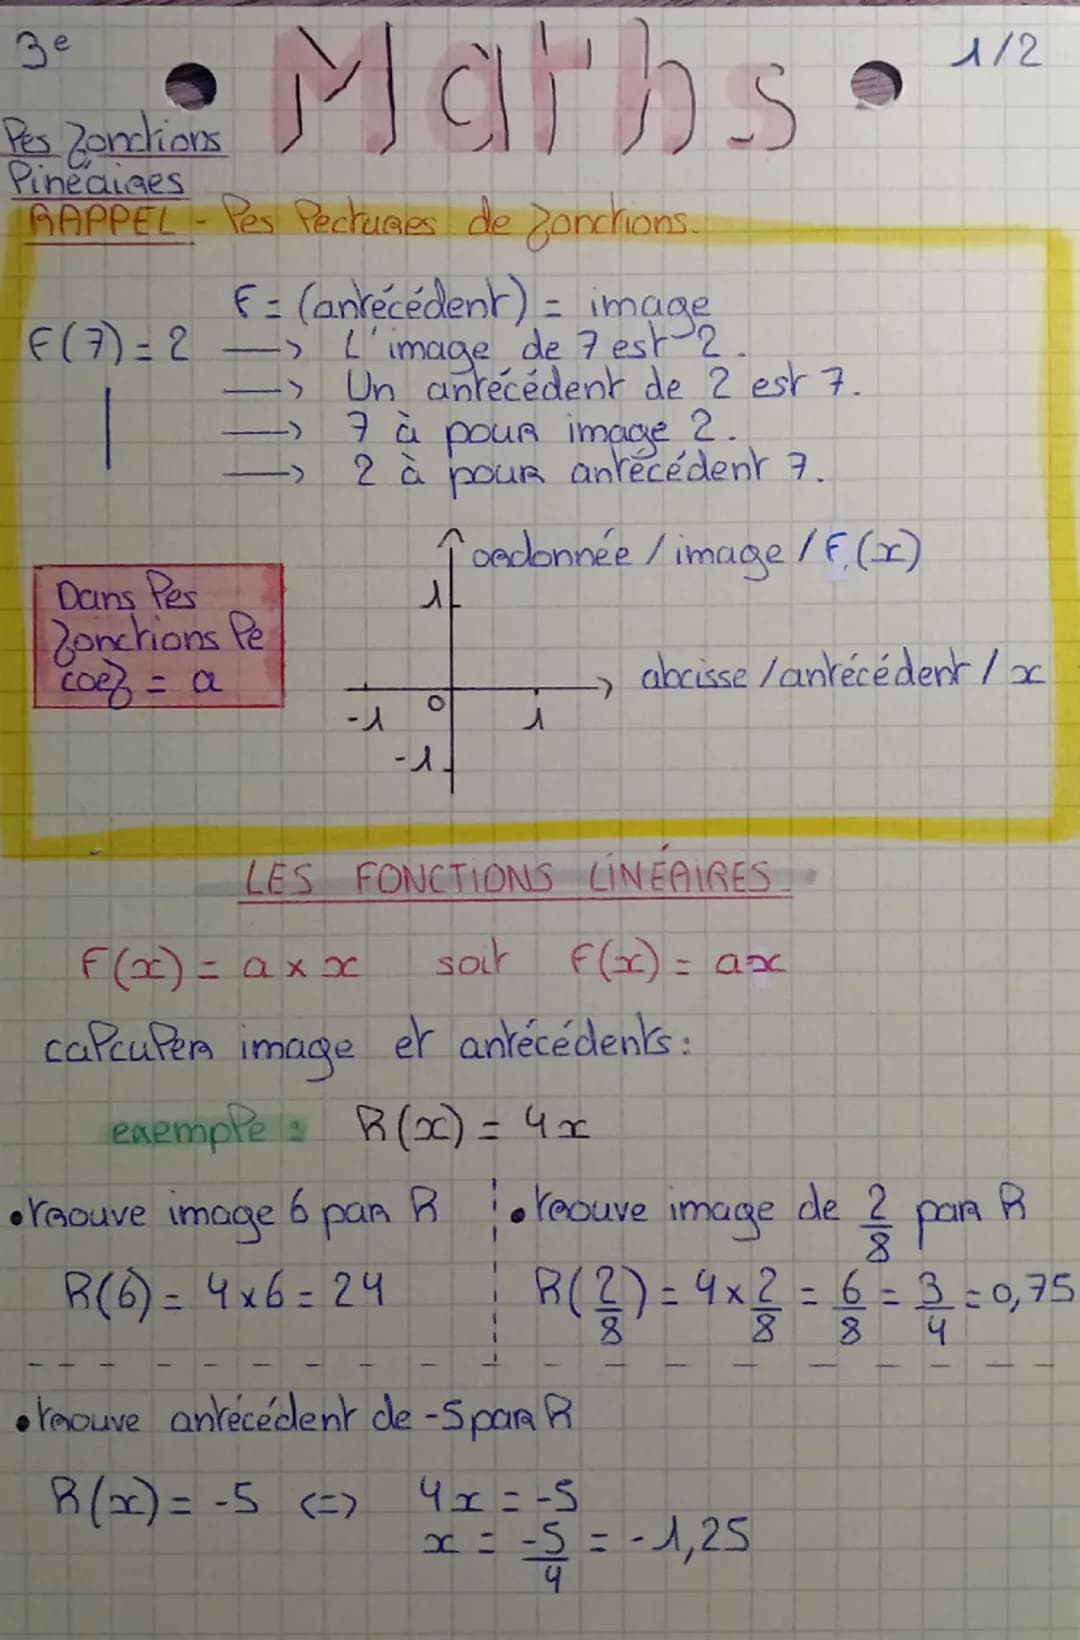 3e
Maths
1/2
Les fonctions
linéaires
RAPPEL - Les lectures de fonctions.
F = (antécédent) = image
F(7) = 2 → L'image de 7 est 2.
→ Un antécédent de 2 est 7.
→ 7 à pour image 2.
→ 2 à pour antécédent 7.
ordonnée / image / F(x)
1
Dans les
fonctions le
coef = a
abcisse / antécédent / x
-1 0 1
-1
LES FONCTIONS LINÉAIRES
F(x) = a x x soit F(x) = ax
calculer image et antécédents :
exemple : R(x) = 4x
• trouve image 6 par R
R(6) = 4x6 = 24
• trouve image de 2/8 par R
R(2/8) = 4x2/8 = 6/8 = 3/4 = 0,75
• trouve antécédent de -5 par R
R(x) = -5 <=> 4x = -5
x = -5/4 = -1,25